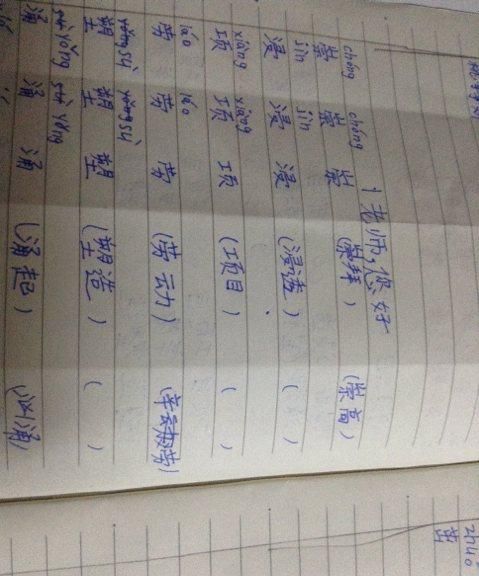 1老师,您好
chóng chóng
崇 崇 崇 (崇拜) (崇高)
jìn jìn
浸 浸 浸 (浸透) ( )
xiàng xiàng
项 项 项 (项目) ( )
láo láo
劳 劳 劳 (劳动)
sù sù
塑 塑 塑 (塑造) ( )
yǒng yǒng
涌 涌 涌 (涌起) (汹涌)
zhuó
茁